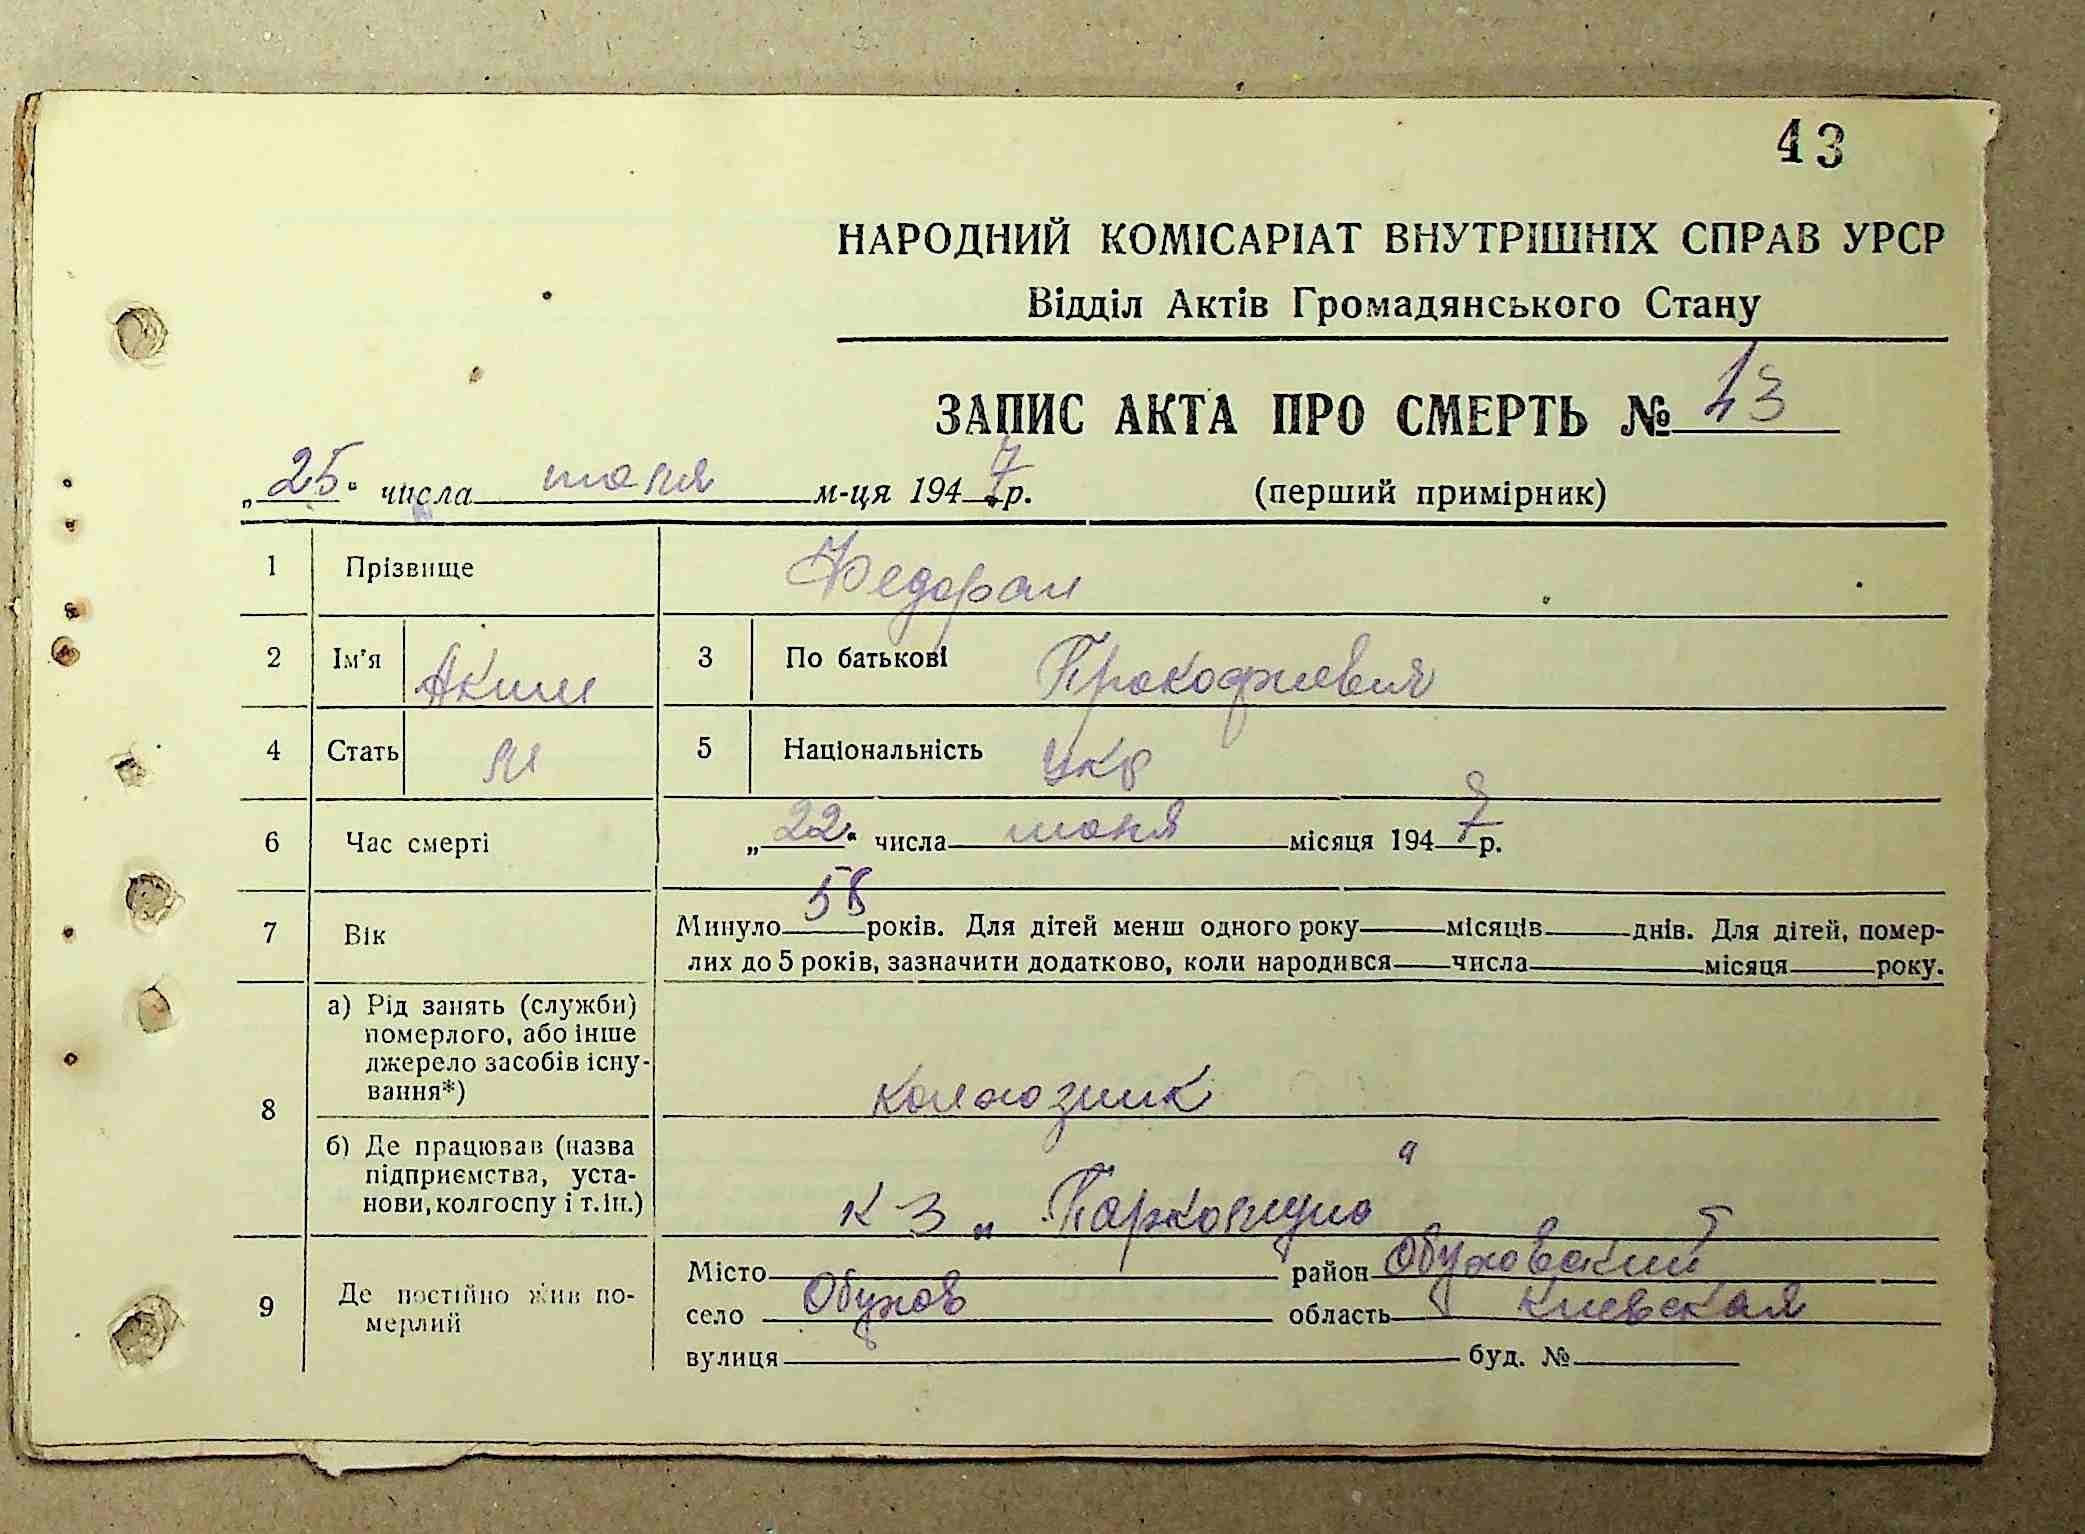 43
НАРОДНИЙ КОМІСАРІАТ ВНУТРІШНІХ СПРАВ УРСР
Відділ Актів Громадянського Стану
ЗАПИС АКТА ПРО СМЕРТЬ № 13
„25“ числа июня м-ця 1947 р. (перший примірник)
1 Прізвище Федорам
2 Ім'я Аким 3 По батькові Прокофиевич
4 Стать м 5 Національність Укр
6 Час смерті „22“ числа июня місяця 1947 р.
7 Вік Минуло 58 років. Для дітей менш одного року місяців днів. Для дітей, помер-
лих до 5 років, зазначити додатково, коли народився числа місяця року.
8 а) Рід занять (служби)
померлого, або інше
джерело засобів існу-
вання*) колхозник
б) Де працював (назва
підприємства, уста-
нови, колгоспу і т. ін.) К З „Паркомуна“
9 Де постійно жив по-
мерлий
Місто район Обуховский
село Обухов область Киевская
вулиця буд. №